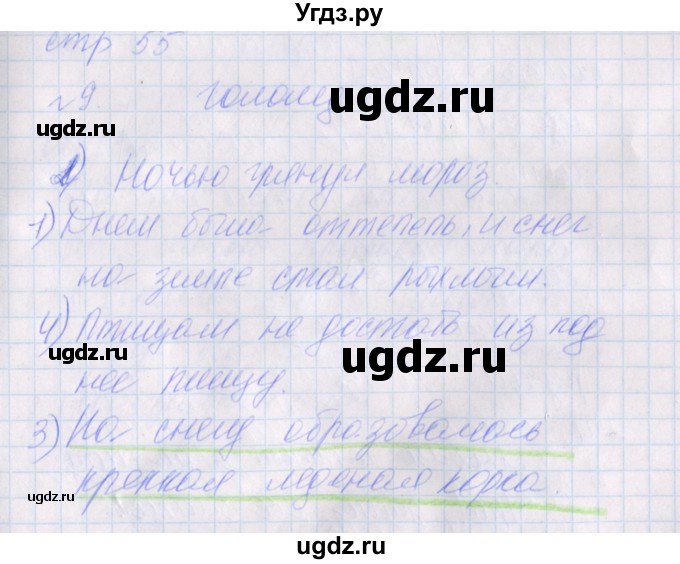 Угдз.ру
стр 55
№9. гололед
2) Ночью грянул мороз.
1) Днем была оттепель, и снег
на земле стал рыхлым.
4) Птицам не достать из под
нее пищу.
3) На снегу образовалась
крепкая ледяная корка.
ugdz.ru
ugdz.ru
ugdz.ru
ugdz.ru
ugdz.ru
ugdz.ru
ugdz.ru
ugdz.ru